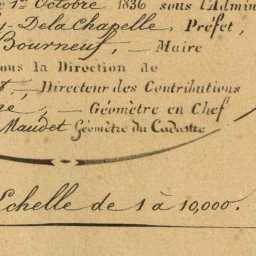 1er Octobre 1836 sous l'Admin
DelaChapelle, Préfet,
Bourneuf, — Maire
sous la Direction de
, — Directeur des Contributions
, — Géomètre en Chef
Maudet Géomètre du Cadastre
Echelle de 1 à 10,000.